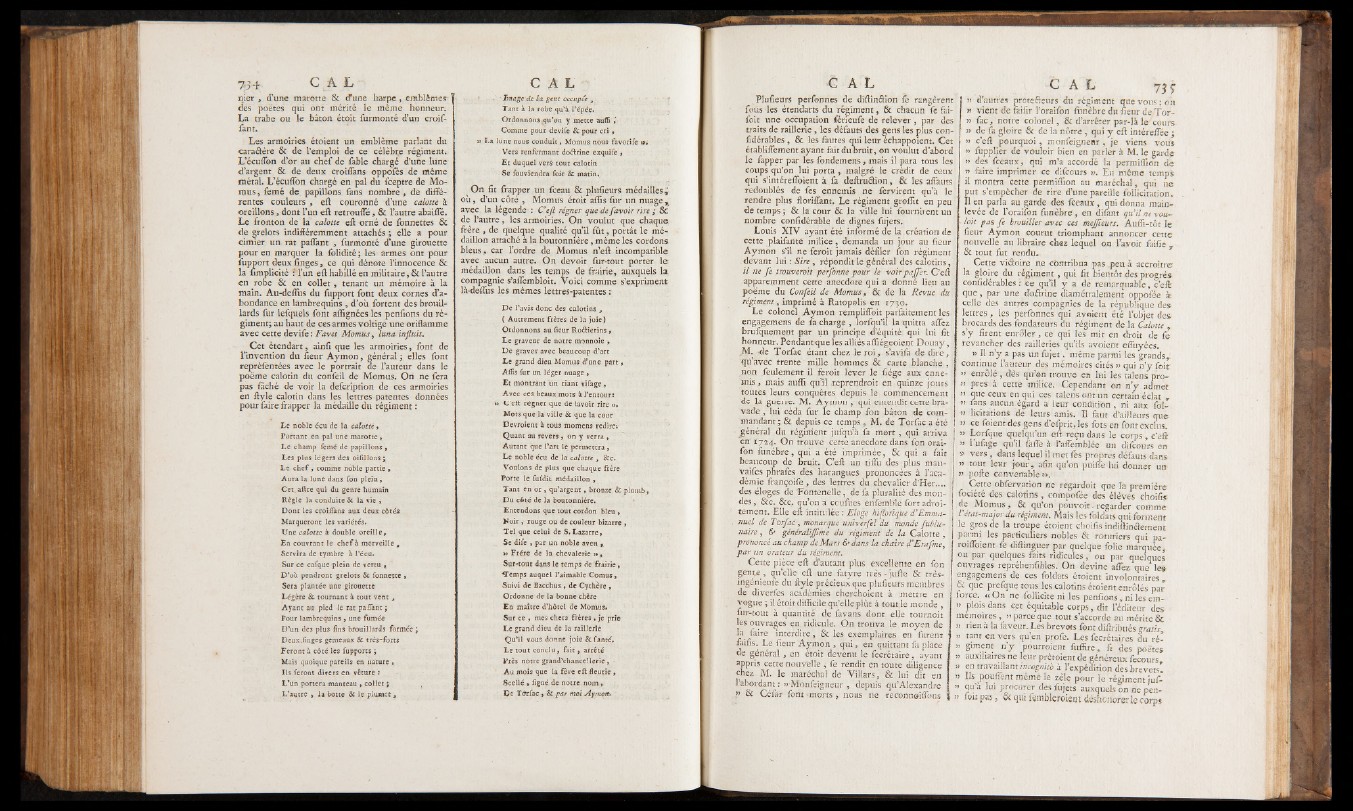 734 C A L
nier, d'une marotte & d'une harpe, emblêmes
des poëtes qui ont mérité le même honneur.
La trabe ou le bâton étoit surmonté d'un crois-
sant.
Les armoiries étoient un emblême parlant du
caractère & de l'emploi de ce célèbre régiment.
L'écusson d'or au chef de sable chargé d'une lune
d'argent & de deux croissans opposés de même
métal. L'écusson chargé en pal du sceptre de Mo-
mus, semé de papillons sans nombre, de diffé-
rentes couleurs, est couronné d'une calotte à
oreillons, dont l'un est retroussé, & l'autre abaissé.
Le fronton de la calotte est orné de sonnettes &
de grelots indifféremment attachés ; elle a pour
cimier un rat passant, surmonté d'une girouette
pour en marquer la solidité ; les armes ont pour
support deux singes, ce qui dénote l'innocence &
la simplicité : l'un est habillé en militaire, & l'autre
en robe & en collet, tenant un mémoire à la
main. Au-dessus du support sont deux cornes d'a-
bondance en lambrequins, d'où sortent des brouil-
lards sur lesquels sont assignées les pensions du ré-
giment; au haut de ces armes voltige une oriflamme
avec cette devise : Favet Momus, luna influit.
Cet étendart, ainsi que les armoiries, sont de
l'invention du sieur Aymon, général ; elles sont
représentées avec le portrait de l'auteur dans le
poëme calotin du conseil de Momus. On ne sera
pas fâché de voir la description de ces armoiries
en style calotin dans les lettres patentes données
pour faire frapper la médaille du régiment :
Le noble écu de la calotte,
Portant en pal une marotte,
Le champ semé de papillons,
Les plus légers des oisillons ;
Le chef, comme noble partie,
Aura la lune dans son plein,
Cet astre qui du genre humain
Règle la conduite & la vie,
Dont les croissans aux deux côtés
Marqueront les variétés.
Une calotte à double oreille,
En couvrant le chef à merveille,
Servira de tymbre à l'écu.
Sur ce casque plein de vertu,
D'où pendront grelots & sonnette,
Sera plantée une girouette
Légère & tournant à tout vent,
Ayant au pied le rat passant ;
Pour lambrequins, une fumée
D'un des plus fins brouillards formée ;
Deux singes gemeaux & très-forts
Feront à côté les supports ;
Mais quoique pareils en nature,
Ils seront divers en vêture :
L'un portera manteau, collet ;
L'autre, la botte & le plumet,
C A L
Image de la gent occupée,
Tant à la robe qu'à l'épée.
Ordonnons qu'on y mette aussi,
Comme pour devise & pour cri,
» La lune nous conduit, Momus nous favorise ».
Vers renfermant doctrine exquise,
Et duquel vers tout calotin
Se souviendra soir & matin.
On fit frapper un sceau & plusieurs médailles,
où, d'un côté, Momus étoit assis sur un nuage,
avec la légende : C'est régner que de savoir rire ; &
de l'autre, les armoiries. On voulut que chaque
frère, de quelque qualité qu'il fût, portât le mé-
daillon attaché à la boutonnière, même les cordons
bleus, car l'ordre de Momus n'est incompatible
avec aucun autre. On devoit sur-tout porter le
médaillon dans les temps de frairie, auxquels la
compagnie s'assembloit. Voici comme s'expriment
là-dessus les mêmes lettres-patentes :
De l'avis donc des calotins,
( Autrement frères de la joie)
Ordonnons au sieur Roëttiers,
Le graveur de notre monnoie,
De graver avec beaucoup d'art
Le grand dieu Momus d'une part,
Assis sur un léger nuage,
Et montrant un riant visage,
Avec ces beaux mots à l'entour:
» C'est régner que de savoir rire ».
Mots que la ville & que la cour
Devroient à tous momens redire:
Quant au revers, on y verra,
Autant que l'art le permettra,
Le noble écu de la calotte, &c.
Voulons de plus que chaque frère
Porte le susdit médaillon,
Tant en or, qu'argent, bronze & plomb,
Du côté de la boutonnière.
Entendons que tout cordon bleu,
Noir, rouge ou de couleur bizarre,
Tel que celui de S. Lazarre,
Se dise, par un noble aveu,
» Frère de la chevalerie »,
Sur-tout dans le temps de frairie,
Temps auquel l'aimable Comus,
Suivi de Bacchus, de Cythère,
Ordonne de la bonne chère
En maître d'hôtel de Momus.
Sur ce, mes chers frères, je prie
Le grand dieu de la raillerie
Qu'il vous donne joie & santé.
Le tout conclu, fait, arrêté
Près notre grand'chancellerie,
Au mois que la fève est fleurie,
Scellé, signé de notre nom,
De Torsac, & par moi Aymon.
C A L
Plusieurs personnes de distinction se rangèrent
sous les étendatts du régiment, & chacun se fai-
soit une occupation sérieuse de relever, par des
traits de raillerie, les défauts des gens les plus con-
sidérables, & les fautes qui leur échappoient. Cet
établissement ayant fait du bruit, on voulut d'abord
le sapper par les fondemens, mais il para tous les
coups qu'on lui porta, malgré le crédit de ceux
qui s'intéressoient à sa destruction, & les assauts
redoublés de ses ennemis ne servirent qu'à le
rendre plus florissant. Le régiment grossit en peu
de temps ; & la cour & la ville lui fournirent un
nombre considérable de dignes sujets.
Louis XIV ayant été informé de la création de
cette plaisante milice, demanda un jour au sieur
Aymon s'il ne feroit jamais défiler son régiment
devant lui : Sire, répondit le général des calotins,
il ne se trouveroit personne pour le voir passer. C'est
apparemment cette anecdote qui a donné lieu au
poëme du Conseil de Momus, & de la Revue du
régiment, imprimé à Ratopolis en 1730.
Le colonel Aymon remplissoit parfaitement les
engagemens de sa charge, lorsqu'il la quitta assez
brusquement par un principe d'équité qui lui fit
honneur. Pendant que les alliés assiégeoient Douay,
M. de Torsac étant chez le roi, s'avisa de dire,
qu'avec trente mille hommes & carte blanche,
non seulement il feroit lever le siège aux enne-
mis, mais aussi qu'il reprendroit en quinze jours
toutes leurs conquêtes depuis le commencement
de la guerre. M. Aymon, qui entendit cette bra-
vade, lui céda sur le champ son bâton de com-
mandant ; & depuis ce temps, M. de Torsac a été
général du régiment jusqu'à sa mort, qui arriva
en 1724. On trouve cette anecdote dans son orai-
son funèbre, qui a été imprimée, & qui a fait
beaucoup de bruit. C'est un tissu des plus mau-
vaises phrases des harangues prononcées à l'aca-
démie françoise, des lettres du chevalier d'Her....
des éloges de Fontenelle, de sa pluralité des mon-
des, &c. &c. qu'on a cousues ensemble fort adroi-
tement. Elle est intitulée : Eloge historique d'Emma-
nuel de Torsac, monarque universel du monde sublu-
naire, & généralissime du régiment de la Calotte,
prononcé au champ de Mars & dans la chaire d'Erasme,
par un orateur du régiment.
Cette pièce est d'autant plus excellente en son
genre, qu'elle est une satyre très-juste & très-
ingénieuse du style précieux que plusieurs membres
de diverses académies cherchoient à mettre en
vogue ; il étoit difficile qu'elle plût à tout le monde,
sur-tout à quantité de savans dont elle tournoit
les ouvrages en ridicule. On trouva le moyen de
la faire interdire, & les exemplaires en furent
saisis. Le sieur Aymon, qui, en quittant sa place
de général, en étoit devenu le secrétaire, ayant
appris cette nouvelle, se rendit en toute diligence
chez M. le maréchal de Villars, & lui dit en
l'abordant : » Monseigneur, depuis qu'Alexandre
» & César sont morts, nous ne reconnoissons
C A L 735
» d'autres protecteurs du régiment que vous ; on
» vient de saisir l'oraison funèbre du sieur de Tor-
» sac, notre colonel, & d'arrêter par-là le cours
» de sa gloire & de la nôtre, qui y est intéressée ;
» c'est pourquoi, monseigneur, je viens vous
» supplier de vouloir bien en parler à M. le garde
» des sceaux, qui m'a accordé la permission de
» faire imprimer ce discours ». En même temps
il montra cette permission au maréchal, qui ne
put s'empêcher de rire d'une pareille sollicitation.
Il en parla au garde des sceaux, qui donna main-
levée de l'oraison funèbre, en disant qu'il ne vou-
loit pas se brouiller avec ces messieurs. Aussi-tôt le
sieur Aymon courut triomphant annoncer cette
nouvelle au libraire chez lequel on l'avoit saisie,
& tout fut rendu.
Cette victoire ne contribua pas peu à accroître
la gloire du régiment, qui fit bientôt des progrès
considérables : ce qu'il y a de remarquable, c'est
que, par une doctrine diamétralement opposée à
celle des autres compagnies de la république des
lettres, les personnes qui avoient été l'objet des
brocards des fondateurs du régiment de la Calotte,
s'y firent enrôler, ce qui les mit en droit de se
revancher des railleries qu'ils avoient essuyées.
» Il n'y a pas un sujet, même parmi les grands,
continue l'auteur des mémoires cités » qui n'y soit
» enrôlé, dès qu'on trouve en lui les talens pro-
» pres à cette milice. Cependant on n'y admet
» que ceux en qui ces talens ont un certain éclat,
» sans aucun égard à leur condition, ni aux sol-
» licitations de leurs amis. Il faut d'ailleurs que
» ce soient des gens d'esprit, les sots en sont exclus.
» Lorsque quelqu'un est reçu dans le corps, c'est
» l'usage qu'il fasse à l'assemblée un discours en
» vers, dans lequel il met ses propres défauts dans
» tout leur jour, afin qu'on puisse lui donner un
» poste convenable ».
Cette observation ne regardoit que la première
société des calotins, composée des élèves choisis
de Momus, & qu'on pouvoit regarder comme
l'état-major du régiment. Mais les soldats qui forment
le gros de la troupe étoient choisis indistinctement
parmi les particuliers nobles & roturiers qui pa-
roissoient se distinguer par quelque folie marquée,
ou par quelques faits ridicules, ou par quelques
ouvrages repréhensibles. On devine assez que les
engagemens de ces soldats étoient involontaires,
& que presque tous les calotins étoient enrôlés par
force. « On ne sollicite ni les pensions, ni les em-
» plois dans cet équitable corps, dit l'éditeur des
mémoires, » parce que tout s'accorde au mérite &
» rien à la faveur. Les brevets sont distribués gratis,
» tant en vers qu'en prose. Les secrétaires du ré-
» giment n'y pourroient suffire, si des poëtes
» auxiliaires ne leur prêtoient de généreux secours,
» en travaillant incognito à l'expédition des brevets.
» Ils poussent même le zèle pour le régiment jus-
» qu'à lui procurer des sujets auxquels on ne pen-
» soit pas, & qui sembleroient déshonorer le corps